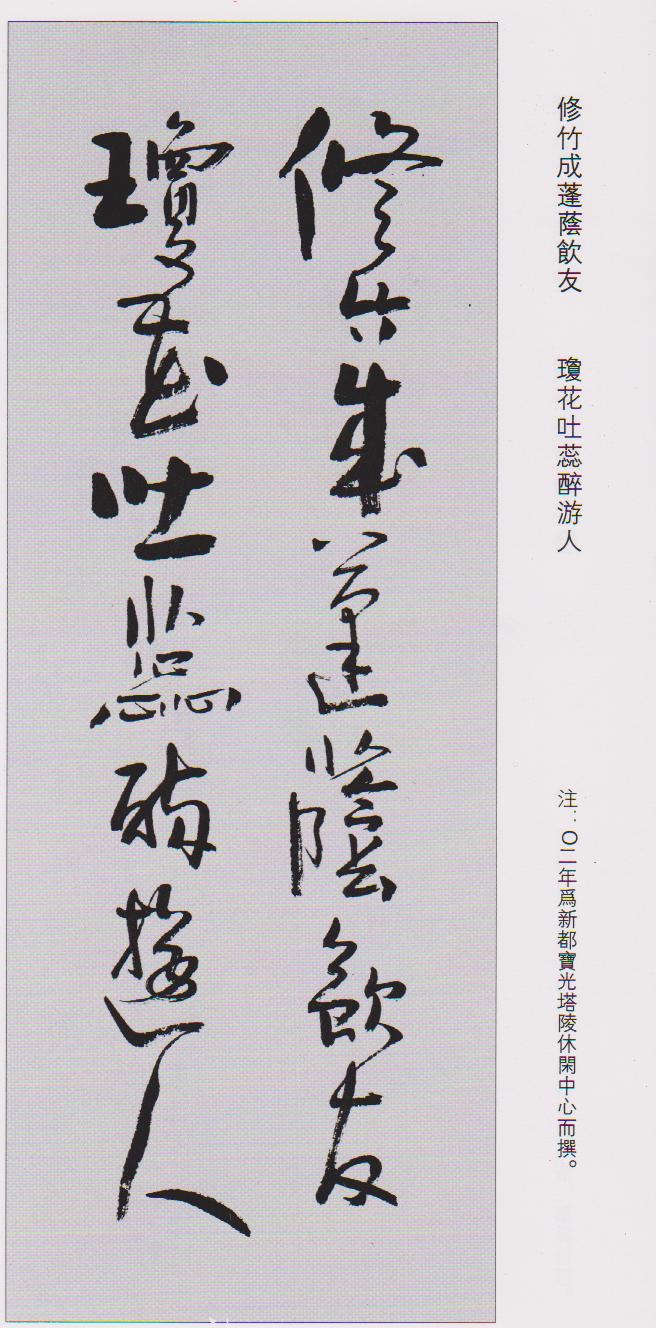 修竹成蓬蔭飲友　瓊花吐蕊醉游人
注：〇二年爲新都寶光塔陵休閑中心而撰。
修竹成蓬蔭飲友
瓊花吐蕊醉遊人